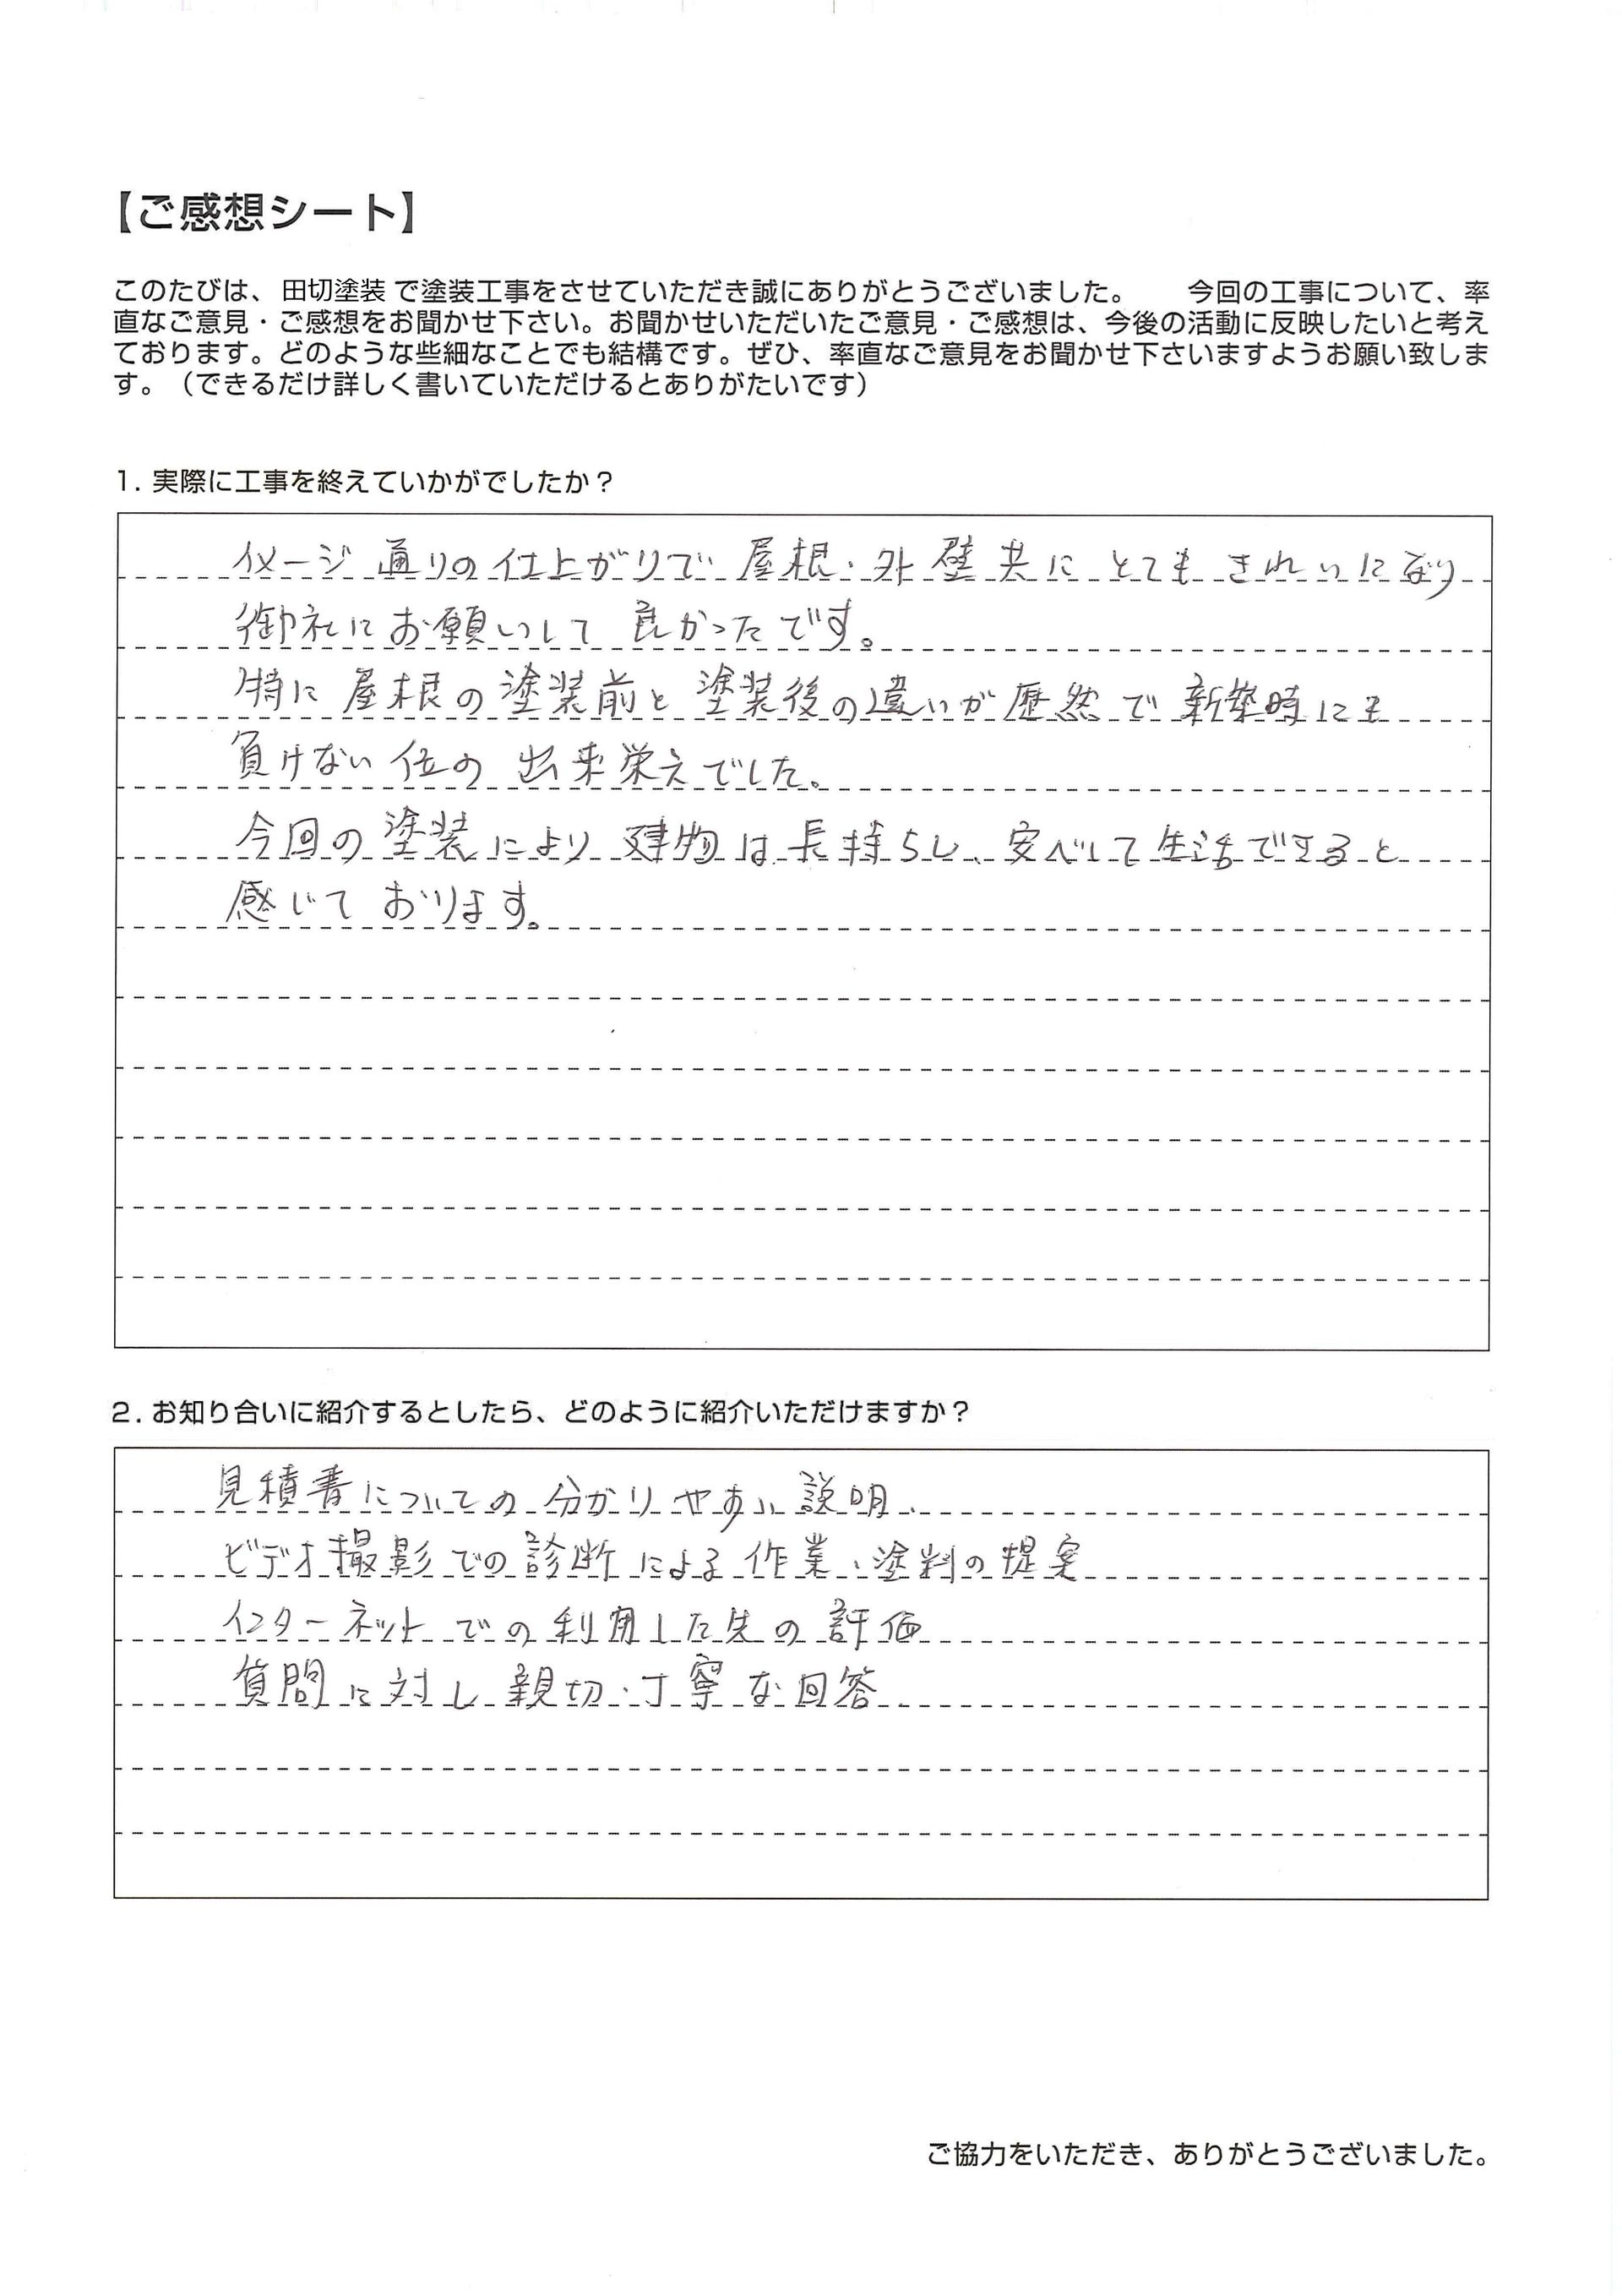 【ご感想シート】
このたびは、田切塗装で塗装工事をさせていただき誠にありがとうございました。　　今回の工事について、率
直なご意見・ご感想をお聞かせ下さい。お聞かせいただいたご意見・ご感想は、今後の活動に反映したいと考え
ております。どのような些細なことでも結構です。ぜひ、率直なご意見をお聞かせ下さいますようお願い致しま
す。（できるだけ詳しく書いていただけるとありがたいです）
1. 実際に工事を終えていかがでしたか？
イメージ通りの仕上がりで屋根・外壁共にとてもきれいになり
御社にお願いして良かったです。
特に屋根の塗装前と塗装後の違いが歴然で新築時にも
負けない位の出来栄えでした。
今回の塗装により建物は長持ちし、安心して生活できると
感じております。
2. お知り合いに紹介するとしたら、どのように紹介いただけますか？
見積書についての分かりやすい説明、
ビデオ撮影での診断による作業、塗料の提案
インターネットでの利用した先の評価
質問に対し親切・丁寧な回答
ご協力をいただき、ありがとうございました。